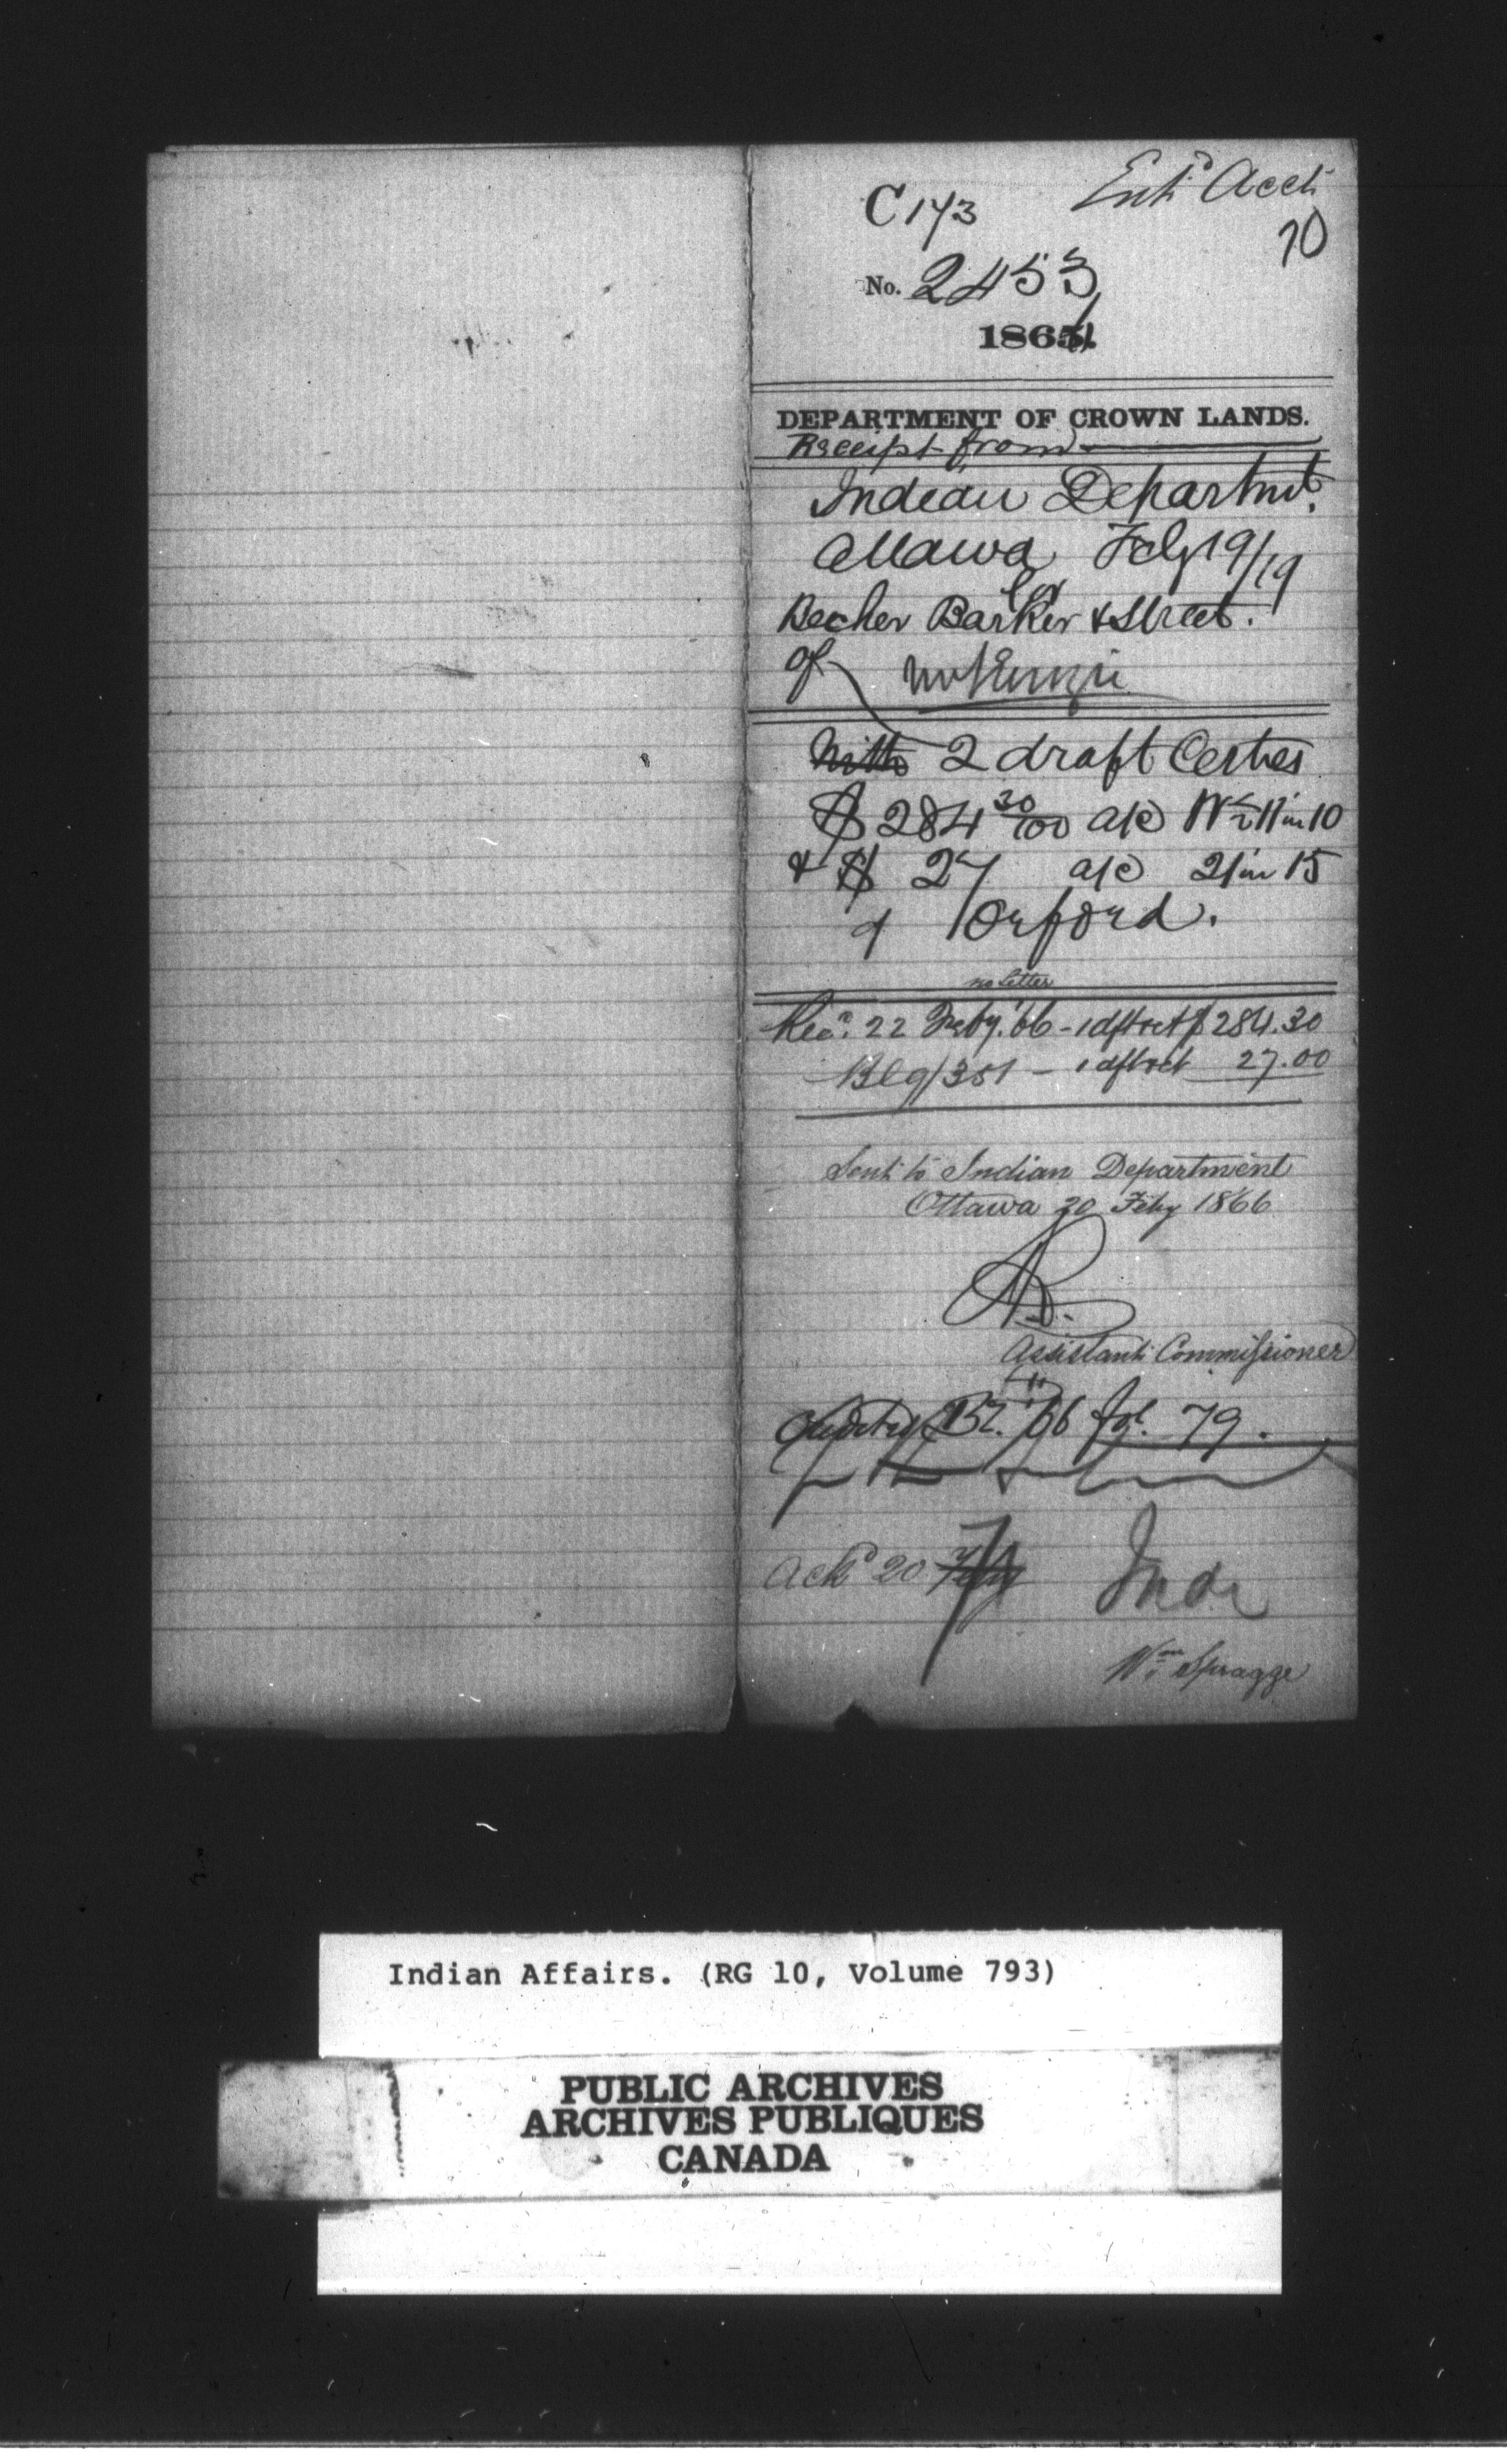 Entd Acct
C 173
10
No. 2453
1865
DEPARTMENT OF CROWN LANDS.
Receipt from
Indian Departmt.
Ottawa Feby 19/19
for
Becher Barker & Street.
of McKenzie
With 2 draft Certres
$ 284 30/100 a/c W½ 11 in 10
& $ 27 a/c 21 in 15
of Orford.
no letter
Recd. 22 Feby. '66 - 1 dft rct $ 284.30
351 - 1 dft rct 27.00
Sent to Indian Department
Ottawa 20 Feby 1866
Assistant Commissioner
'66 fol. 79.
Ackd 20 Feby
Wm. Spragge
Indian Affairs. (RG 10, Volume 793)
PUBLIC ARCHIVES
ARCHIVES PUBLIQUES
CANADA